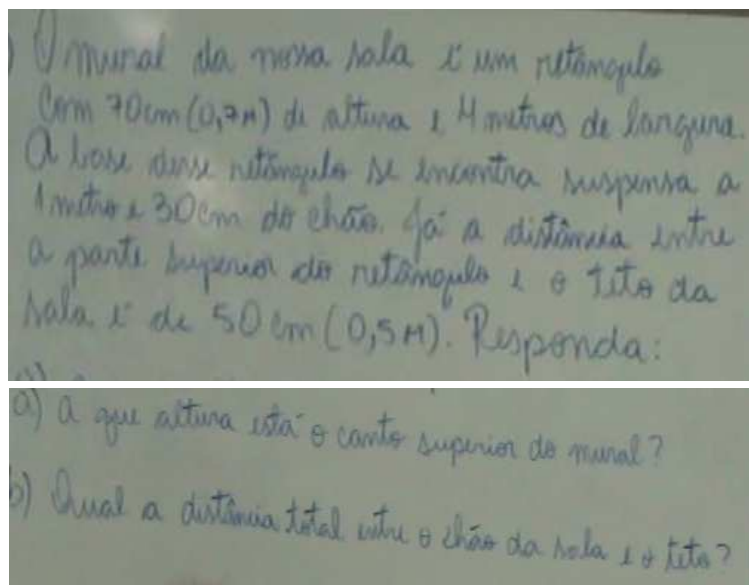 O mural da nossa sala é um retângulo
com 70cm (0,7M) de altura e 4 metros de largura.
A base desse retângulo se encontra suspensa a
1 metro e 30cm do chão. Já a distância entre
a parte superior do retângulo e o teto da
sala é de 50cm (0,5M). Responda:
a) A que altura está o canto superior do mural?
b) Qual a distância total entre o chão da sala e o teto?